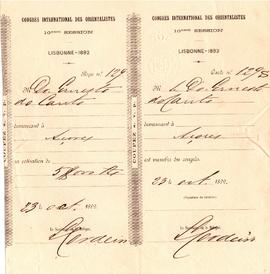 CONGRES INTERNATIONAL DES ORIENTALISTES
10ème SESSION
LISBONNE-1892
Reçu nº 129
M. Do Ernesto
do Canto
demeurant à
Açores
sa cotisation de
23 oct. 1892
Cordeiro
COUPEZ S.V.P.
CONGRES INTERNATIONAL DES ORIENTALISTES
10ème SESSION
LISBONNE-1892
Carte nº 129
M. Do Ernest
do Canto
demeurant à
Açores
est membre du congrès.
23 oct. 1892
Cordeiro